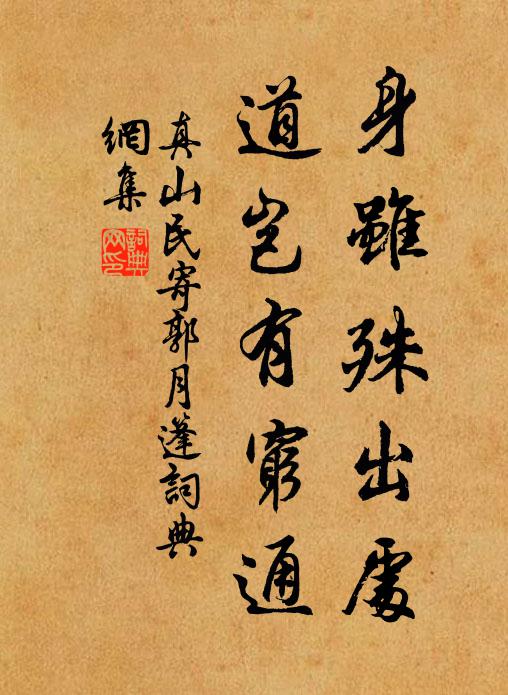 身雖殊出處
道岂有窮通
真山民寄郭月蓬詞典
網集
詞典
网印